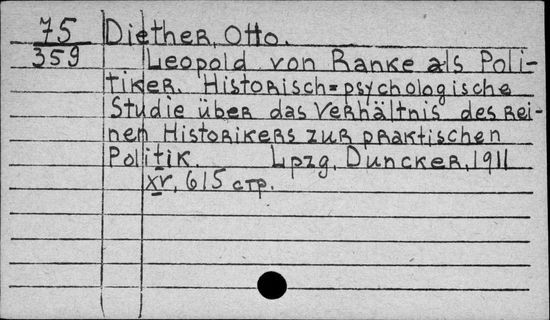 75 Diether, Otto.
359 Leopold von Ranke als Poli-
tiker. Historisch=psychologische
Studie über das Verhältnis des rei-
nen Historikers zur praktischen
Politik. Lpzg, Duncker, 1911
XV, 615 стр.